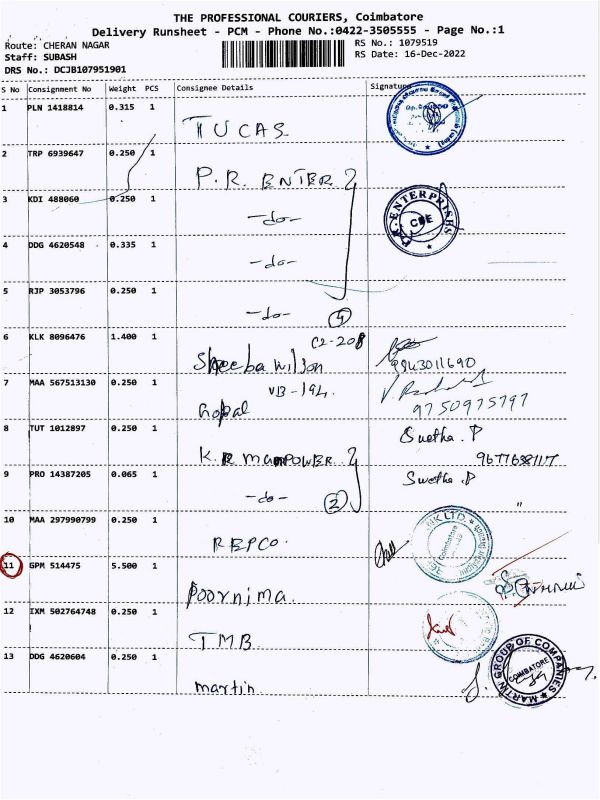 THE PROFESSIONAL COURIERS, Coimbatore
Delivery Runsheet - PCM - Phone No.:0422-3505555 - Page No.:1
Route: CHERAN NAGAR RS No.: 1079519
Staff: SUBASH RS Date: 16-Dec-2022
DRS No.: DCJB107951901
S No Consignment No Weight PCS Consignee Details Signature
1 PLN 1418814 0.315 1
TUCAS
2 TRP 6939647 0.250 1
P.R. ENTER
3 KDI 488060 0.250 1
-do-
P.R. ENTERPRISES
CBE
4 DDG 4620548 0.335 1
-do-
5 RJP 3053796 0.250 1
-do- 4
6 KLK 8096476 1.400 1
C2-208
Sheeba Wilson
9943011690
7 MAA 567513130 0.250 1
VB-194.
Gopal
9750975797
8 TUT 1012897 0.250 1
K.R MANPOWER
Swetha.P
9677638117
9 PRO 14387205 0.065 1
-do- 2
Swetha.P
"
10 MAA 297990799 0.250 1
REPCO.
BANK LTD.
Coimbatore
11 GPM 514475 5.500 1
Poornima.
12 IXM 502764748 0.250 1
TMB
13 DDG 4620604 0.250 1
martin.
MARTIN GROUP OF COMPANIES
COIMBATORE